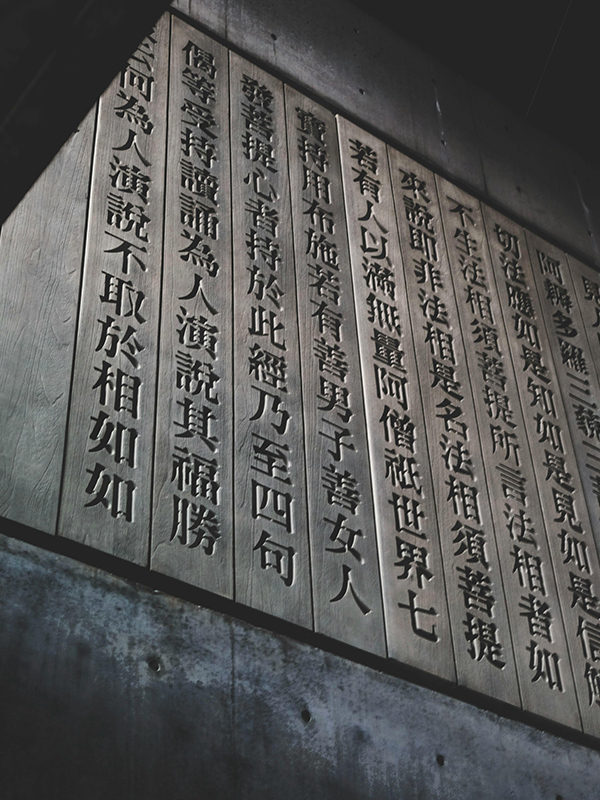 見
阿耨多羅三藐三菩
切法應如是知如是見如是信解
不生法相須菩提所言法相者如
來說即非法相是名法相須菩提
若有人以滿無量阿僧祇世界七
寶持用布施若有善男子善女人
發菩提心者持於此經乃至四句
偈等受持讀誦為人演說其福勝
云何為人演說不取於相如如